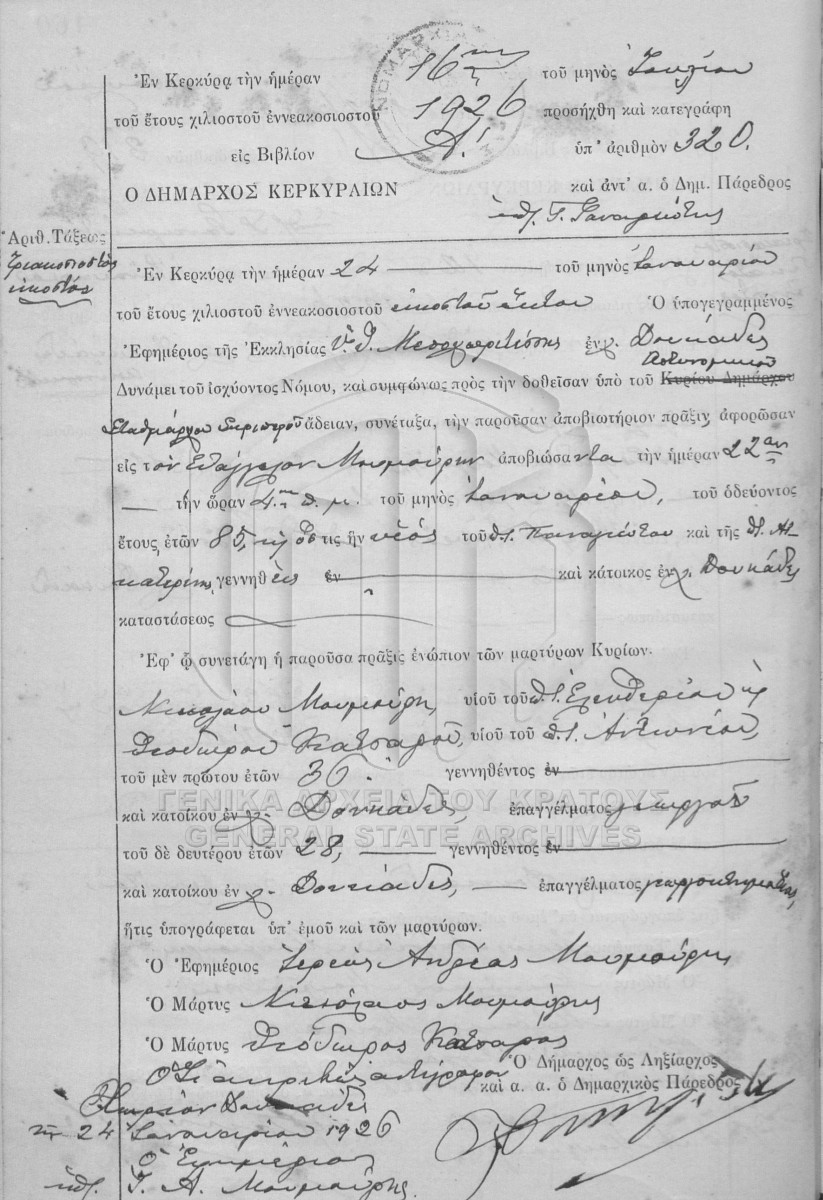 Ἐν Κερκύρᾳ τὴν ἡμέραν 16ην τοῦ μηνὸς Ἰουλίου
τοῦ ἔτους χιλιοστοῦ ἐννεακοσιοστοῦ 1926 προσήχθη καὶ κατεγράφη
εἰς Βιβλίον Α΄. ὑπ' ἀριθμὸν 320.
Ο ΔΗΜΑΡΧΟΣ ΚΕΡΚΥΡΑΙΩΝ καὶ ἀντ' α. ὁ Δημ. Πάρεδρος
Ἀριθ. Τάξεως
τριακοσιοστὸς
εἰκοστὸς
Ἐν Κερκύρᾳ τὴν ἡμέραν 24 τοῦ μηνὸς Ἰανουαρίου
τοῦ ἔτους χιλιοστοῦ ἐννεακοσιοστοῦ εἰκοστοῦ ἕκτου Ὁ ὑπογεγραμμένος
Ἐφημέριος τῆς Ἐκκλησίας ἐν χ. Δουκάδες
Ἀστυνομικοῦ
Δυνάμει τοῦ ἰσχύοντος Νόμου, καὶ συμφώνως πρὸς τὴν δοθεῖσαν ὑπὸ τοῦ Κυρίου Δημάρχου
Σταθμάρχου Σκριπεροῦ ἄδειαν, συνέταξα, τὴν παροῦσαν ἀποβιωτήριον πρᾶξιν, ἀφορῶσαν
εἰς τὸν Εὐάγγελον Μουμούρην ἀποβιώσαντα τὴν ἡμέραν 22αν
τὴν ὥραν 4ην π. μ. τοῦ μηνὸς Ἰανουαρίου, τοῦ ὁδεύοντος
ἔτους, ἐτῶν 85, ὅστις ἦν υἱὸς τοῦ Παναγιώτου καὶ τῆς Αἰ-
κατερίνης, γεννηθεὶς ἐν καὶ κάτοικος ἐν χ. Δουκάδες
καταστάσεως
Ἐφ' ᾧ συνετάγη ἡ παροῦσα πρᾶξις ἐνώπιον τῶν μαρτύρων Κυρίων.
Νικολάου Μουμούρη, υἱοῦ τοῦ Ἐλευθερίου
Θεοδώρου Κατσαροῦ, υἱοῦ τοῦ Ἀντωνίου,
τοῦ μὲν πρώτου ἐτῶν 36. γεννηθέντος ἐν
καὶ κατοίκου ἐν χ. Δουκάδες, ἐπαγγέλματος γεωργοῦ
ΓΕΝΙΚΑ ΑΡΧΕΙΑ ΤΟΥ ΚΡΑΤΟΥΣ
GENERAL STATE ARCHIVES
τοῦ δὲ δευτέρου ἐτῶν 28, γεννηθέντος ἐν
καὶ κατοίκου ἐν χ. Δουκάδες, ἐπαγγέλματος γεωργοκτηματίας,
ἥτις ὑπογράφεται ὑπ' ἐμοῦ καὶ τῶν μαρτύρων.
Ὁ Ἐφημέριος Ἱερεὺς Ἀνδρέας Μουμούρης
Ὁ Μάρτυς Νικόλαος Μουμούρης
Ὁ Μάρτυς Θεόδωρος Κατσαρός
Ὁ Δήμαρχος ὡς Ληξίαρχος
καὶ α. α. ὁ Δημαρχικὸς Πάρεδρος
Δουκάδες
τῇ 24 Ἰανουαρίου 1926
Ὁ Ἐφημέριος
Α. Μουμούρης